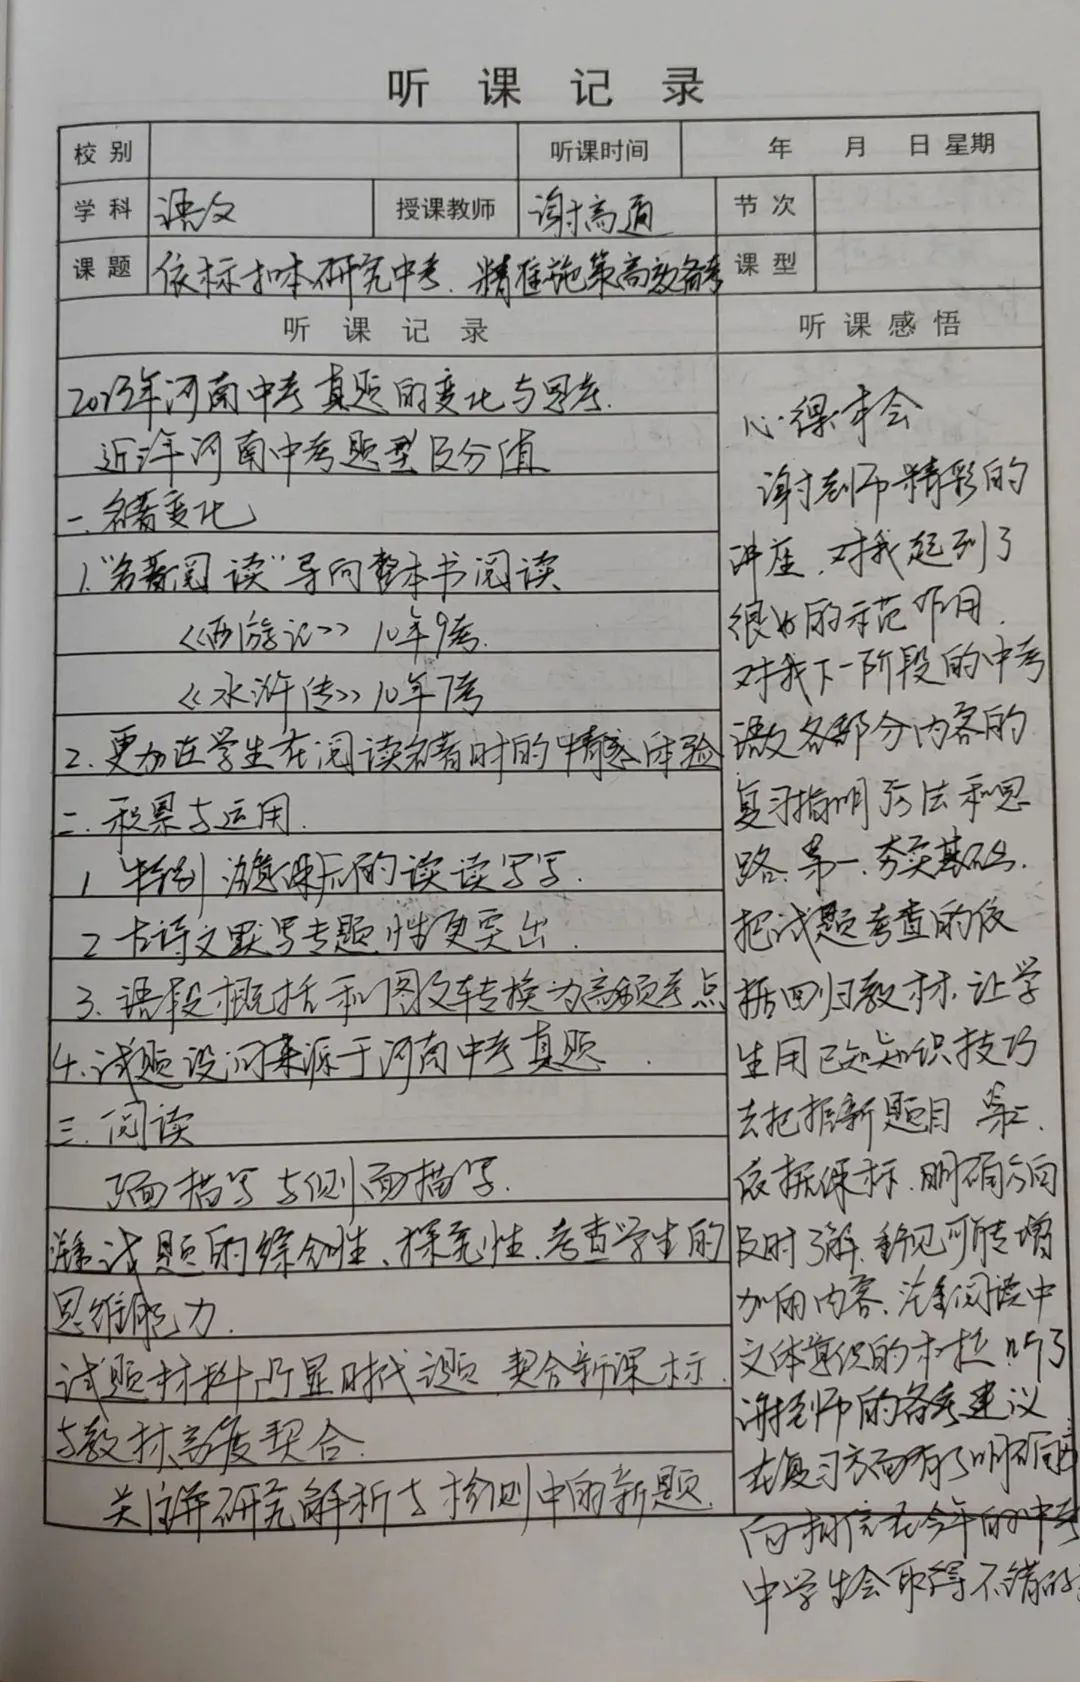 听课记录
校别 听课时间 年 月 日 星期
学科 语文 授课教师 谢高通 节次
课题 依标扣本研究中考、精准施策高效备考 课型
听课记录 听课感悟
2023年河南中考真题的变化与思考.
近年河南中考题型及分值
一.名著变化
1."名著阅读"导向整本书阅读
《西游记》10年9考.
《水浒传》10年7考
2.更加注学生在阅读名著时的情感体验
二.积累与运用.
1 特别注意课后的读读写写.
2 古诗文默写专题性更突出.
3.语段概括和图文转换为高频考点
4.试题设问来源于河南中考真题.
三.阅读
正面描写与侧面描写.
注重试题的综合性、探究性、考查学生的
思维能力.
试题材料凸显时代议题、契合新课标.
与教材高度契合.
关注并研究解析与检测中的新题.
心得体会
谢老师精彩的
讲座、对我起到了
很好的示范作用.
对我下一阶段的中考
语文各部分内容的
复习指明方法和思
路、第一、夯实基础.
把试题考查的依
据回归教材、让学
生用已知知识技巧
去把握新题目 第二.
依据课标、明确方向
及时了解、
加的内容、注重阅读中
文体意识的 听了
谢老师的备考建议
在复习方面有了明确
向相信在今年的中考
中学生会取得不错的